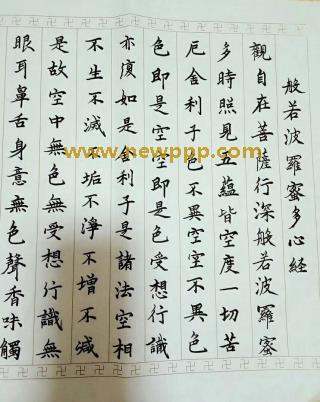 般若波羅蜜多心経
觀自在菩薩行深般若波羅蜜
多時照見五蘊皆空度一切苦
厄舍利子色不異空空不異色
色即是空空即是色受想行識
亦復如是舍利子是諸法空相
不生不滅不垢不淨不增不減
是故空中無色無受想行識無
眼耳鼻舌身意無色聲香味觸
www.newppp.com